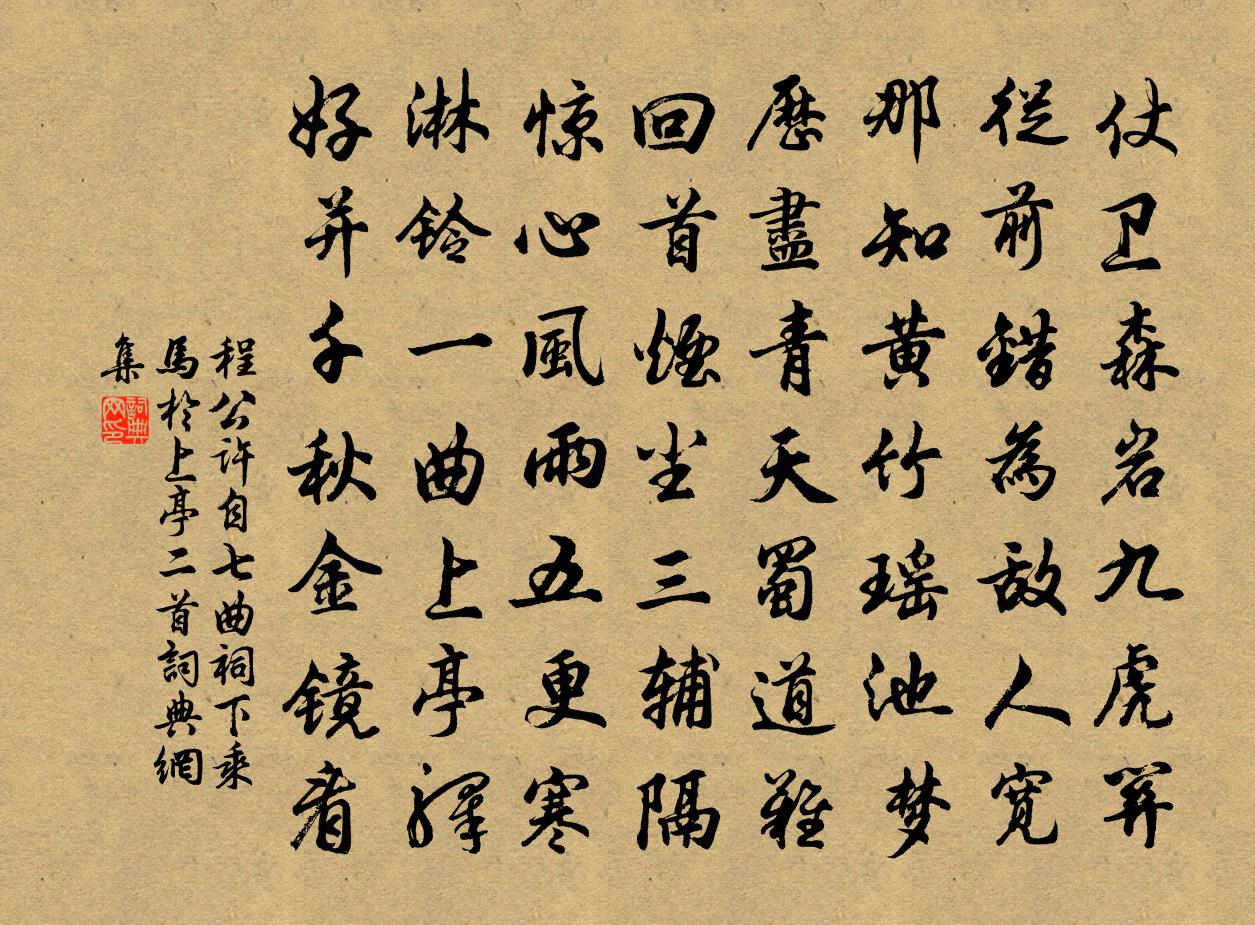 仗卫森岩九虎関
從前錯為敌人寬
那知黄竹瑶池梦
歷盡青天蜀道難
回首煙尘三辅隔
惊心風雨五更寒
淋鈴一曲上亭驛
好并千秋金镜看
程公许自七曲祠下乘
馬於上亭二首詞典網
集
詞典网印